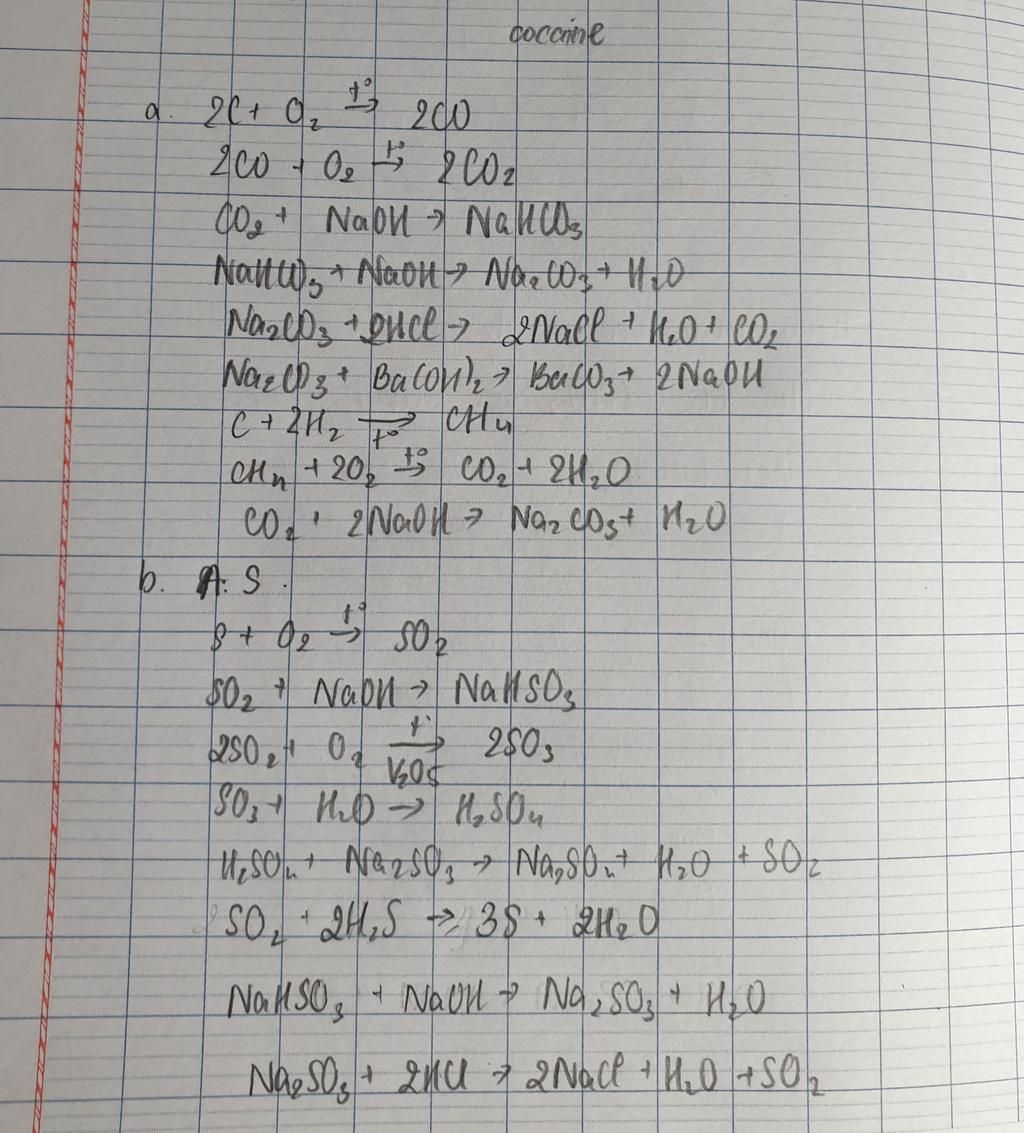 coccaine
a. 2C + O₂ t°→ 2CO
2CO + O₂ t°→ 2CO₂
CO₂ + NaOH → NaHCO₃
NaHCO₃ + NaOH → Na₂CO₃ + H₂O
Na₂CO₃ + 2HCl → 2NaCl + H₂O + CO₂
Na₂CO₃ + Ba(OH)₂ → BaCO₃ + 2NaOH
C + 2H₂ →t° CH₄
CH₄ + 2O₂ t°→ CO₂ + 2H₂O
CO₂ + 2NaOH → Na₂CO₃ + H₂O
b. A: S.
S + O₂ t°→ SO₂
SO₂ + NaOH → NaHSO₃
2SO₂ + O₂ t°→V₂O₅ 2SO₃
SO₃ + H₂O → H₂SO₄
H₂SO₄ + Na₂SO₃ → Na₂SO₄ + H₂O + SO₂
SO₂ + 2H₂S → 3S + 2H₂O
NaHSO₃ + NaOH → Na₂SO₃ + H₂O
Na₂SO₃ + 2HCl → 2NaCl + H₂O + SO₂